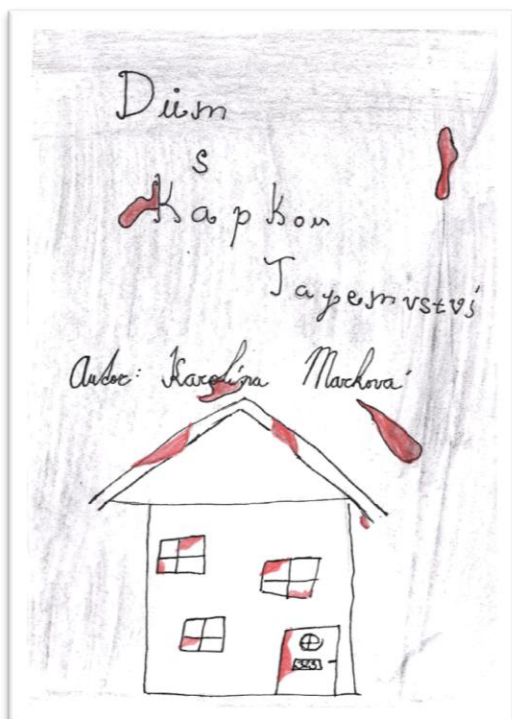 Dům
s
Kapkou
Tajemství
Autor: Karolína Machová